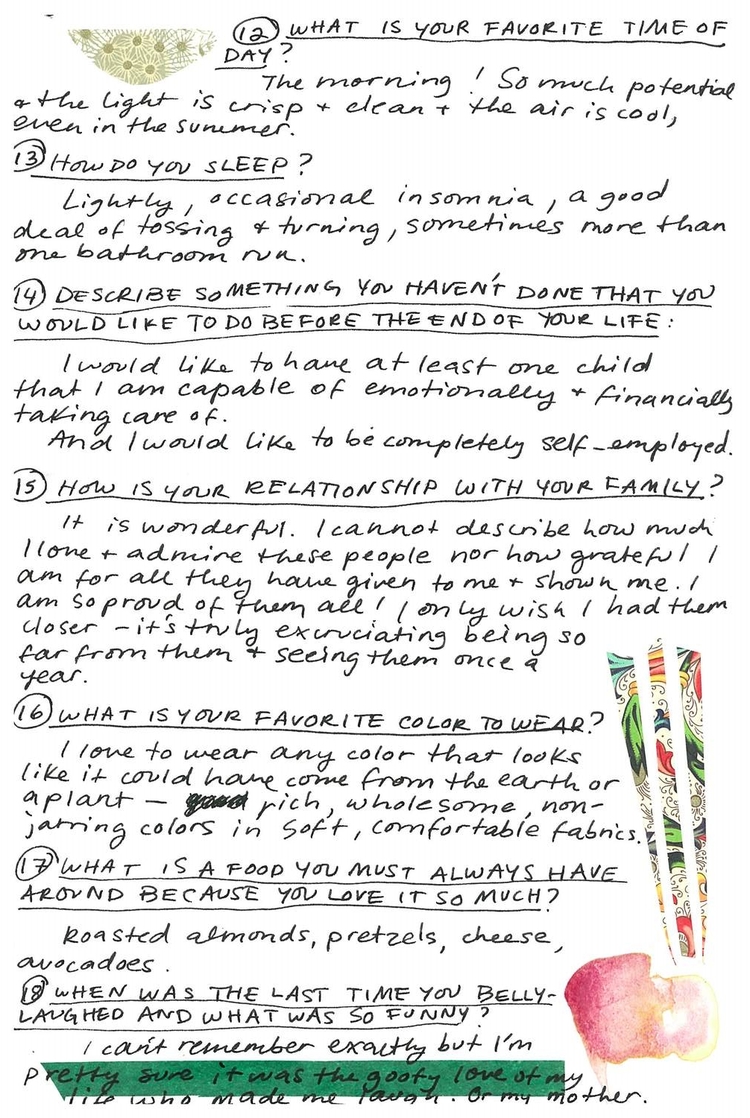 12 WHAT IS YOUR FAVORITE TIME OF
DAY?
The morning! So much potential
& the light is crisp + clean + the air is cool,
even in the summer.
13 HOW DO YOU SLEEP?
Lightly, occasional insomnia, a good
deal of tossing & turning, sometimes more than
one bathroom run.
14 DESCRIBE SOMETHING YOU HAVEN'T DONE THAT YOU
WOULD LIKE TO DO BEFORE THE END OF YOUR LIFE:
I would like to have at least one child
that I am capable of emotionally + financially
taking care of.
And I would like to be completely self-employed.
15 HOW IS YOUR RELATIONSHIP WITH YOUR FAMILY?
It is wonderful. I cannot describe how much
I love + admire these people nor how grateful I
am for all they have given to me + shown me. I
am so proud of them all! I only wish I had them
closer - it's truly excruciating being so
far from them + seeing them once a
year.
16 WHAT IS YOUR FAVORITE COLOR TO WEAR?
I love to wear any color that looks
like it could have come from the earth or
a plant - rich, wholesome, non-
jarring colors in soft, comfortable fabrics.
17 WHAT IS A FOOD YOU MUST ALWAYS HAVE
AROUND BECAUSE YOU LOVE IT SO MUCH?
Roasted almonds, pretzels, cheese,
avocadoes.
18 WHEN WAS THE LAST TIME YOU BELLY-
LAUGHED AND WHAT WAS SO FUNNY?
I can't remember exactly but I'm
pretty sure it was the goofy love of my
life who made me laugh. Or my mother.